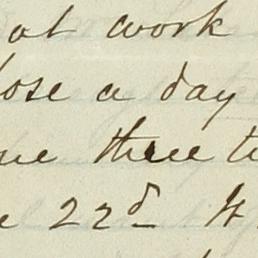 at work
lose a day
three
22d